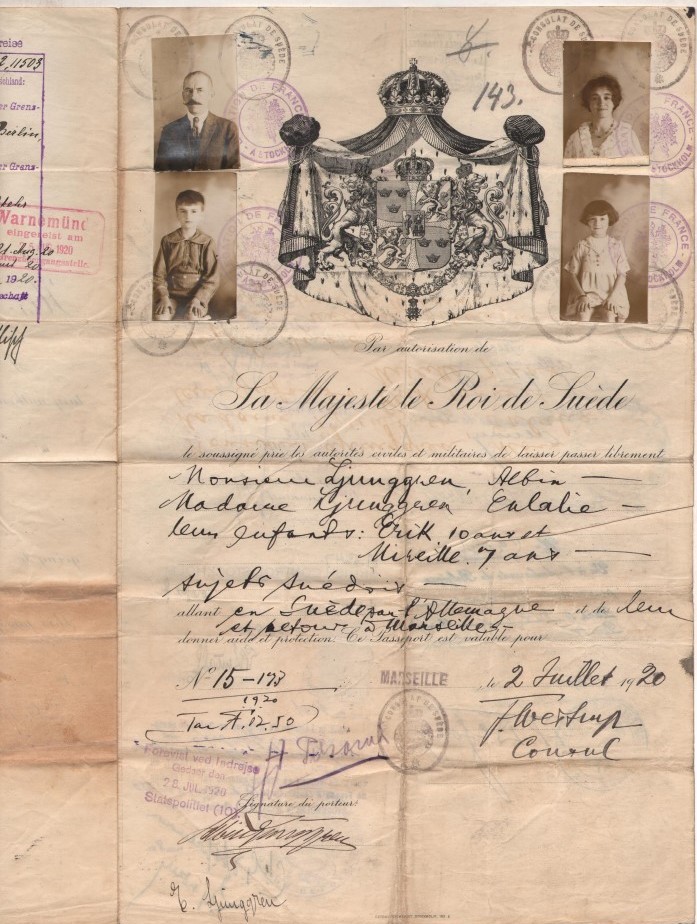 reise
11503
schland:
er Grenz-
Berlin,
er Grenz-
Warnemünd
eingereist am
Aug. 20
1920
1920
schaft
CONSULAT DE SUÈDE
CONSULAT DE SUÈDE
DE FRANCE
A STOCKHOLM
143.
Par autorisation de
Sa Majesté le Roi de Suède
le soussigné prie les autorités civiles et militaires de laisser passer librement
Monsieur Ljunggren, Albin —
Madame Ljunggren Eulalie —
leurs enfants: Erik 10 ans et
Mireille. 7 ans —
sujets suédois —
allant en Suède par l'Allemagne et de leur
et retour à Marseille
donner aide et protection. Ce Passeport est valable pour
No 15-193
1920
Tar. 12.50
MARSEILLE
le 2 Juillet 1920
Consul
Forevist ved Indrejse
Gedser den
28 JUL. 1920
Statspolitiet (10)
Signature du porteur:
Albin Ljunggren
E. Ljunggren